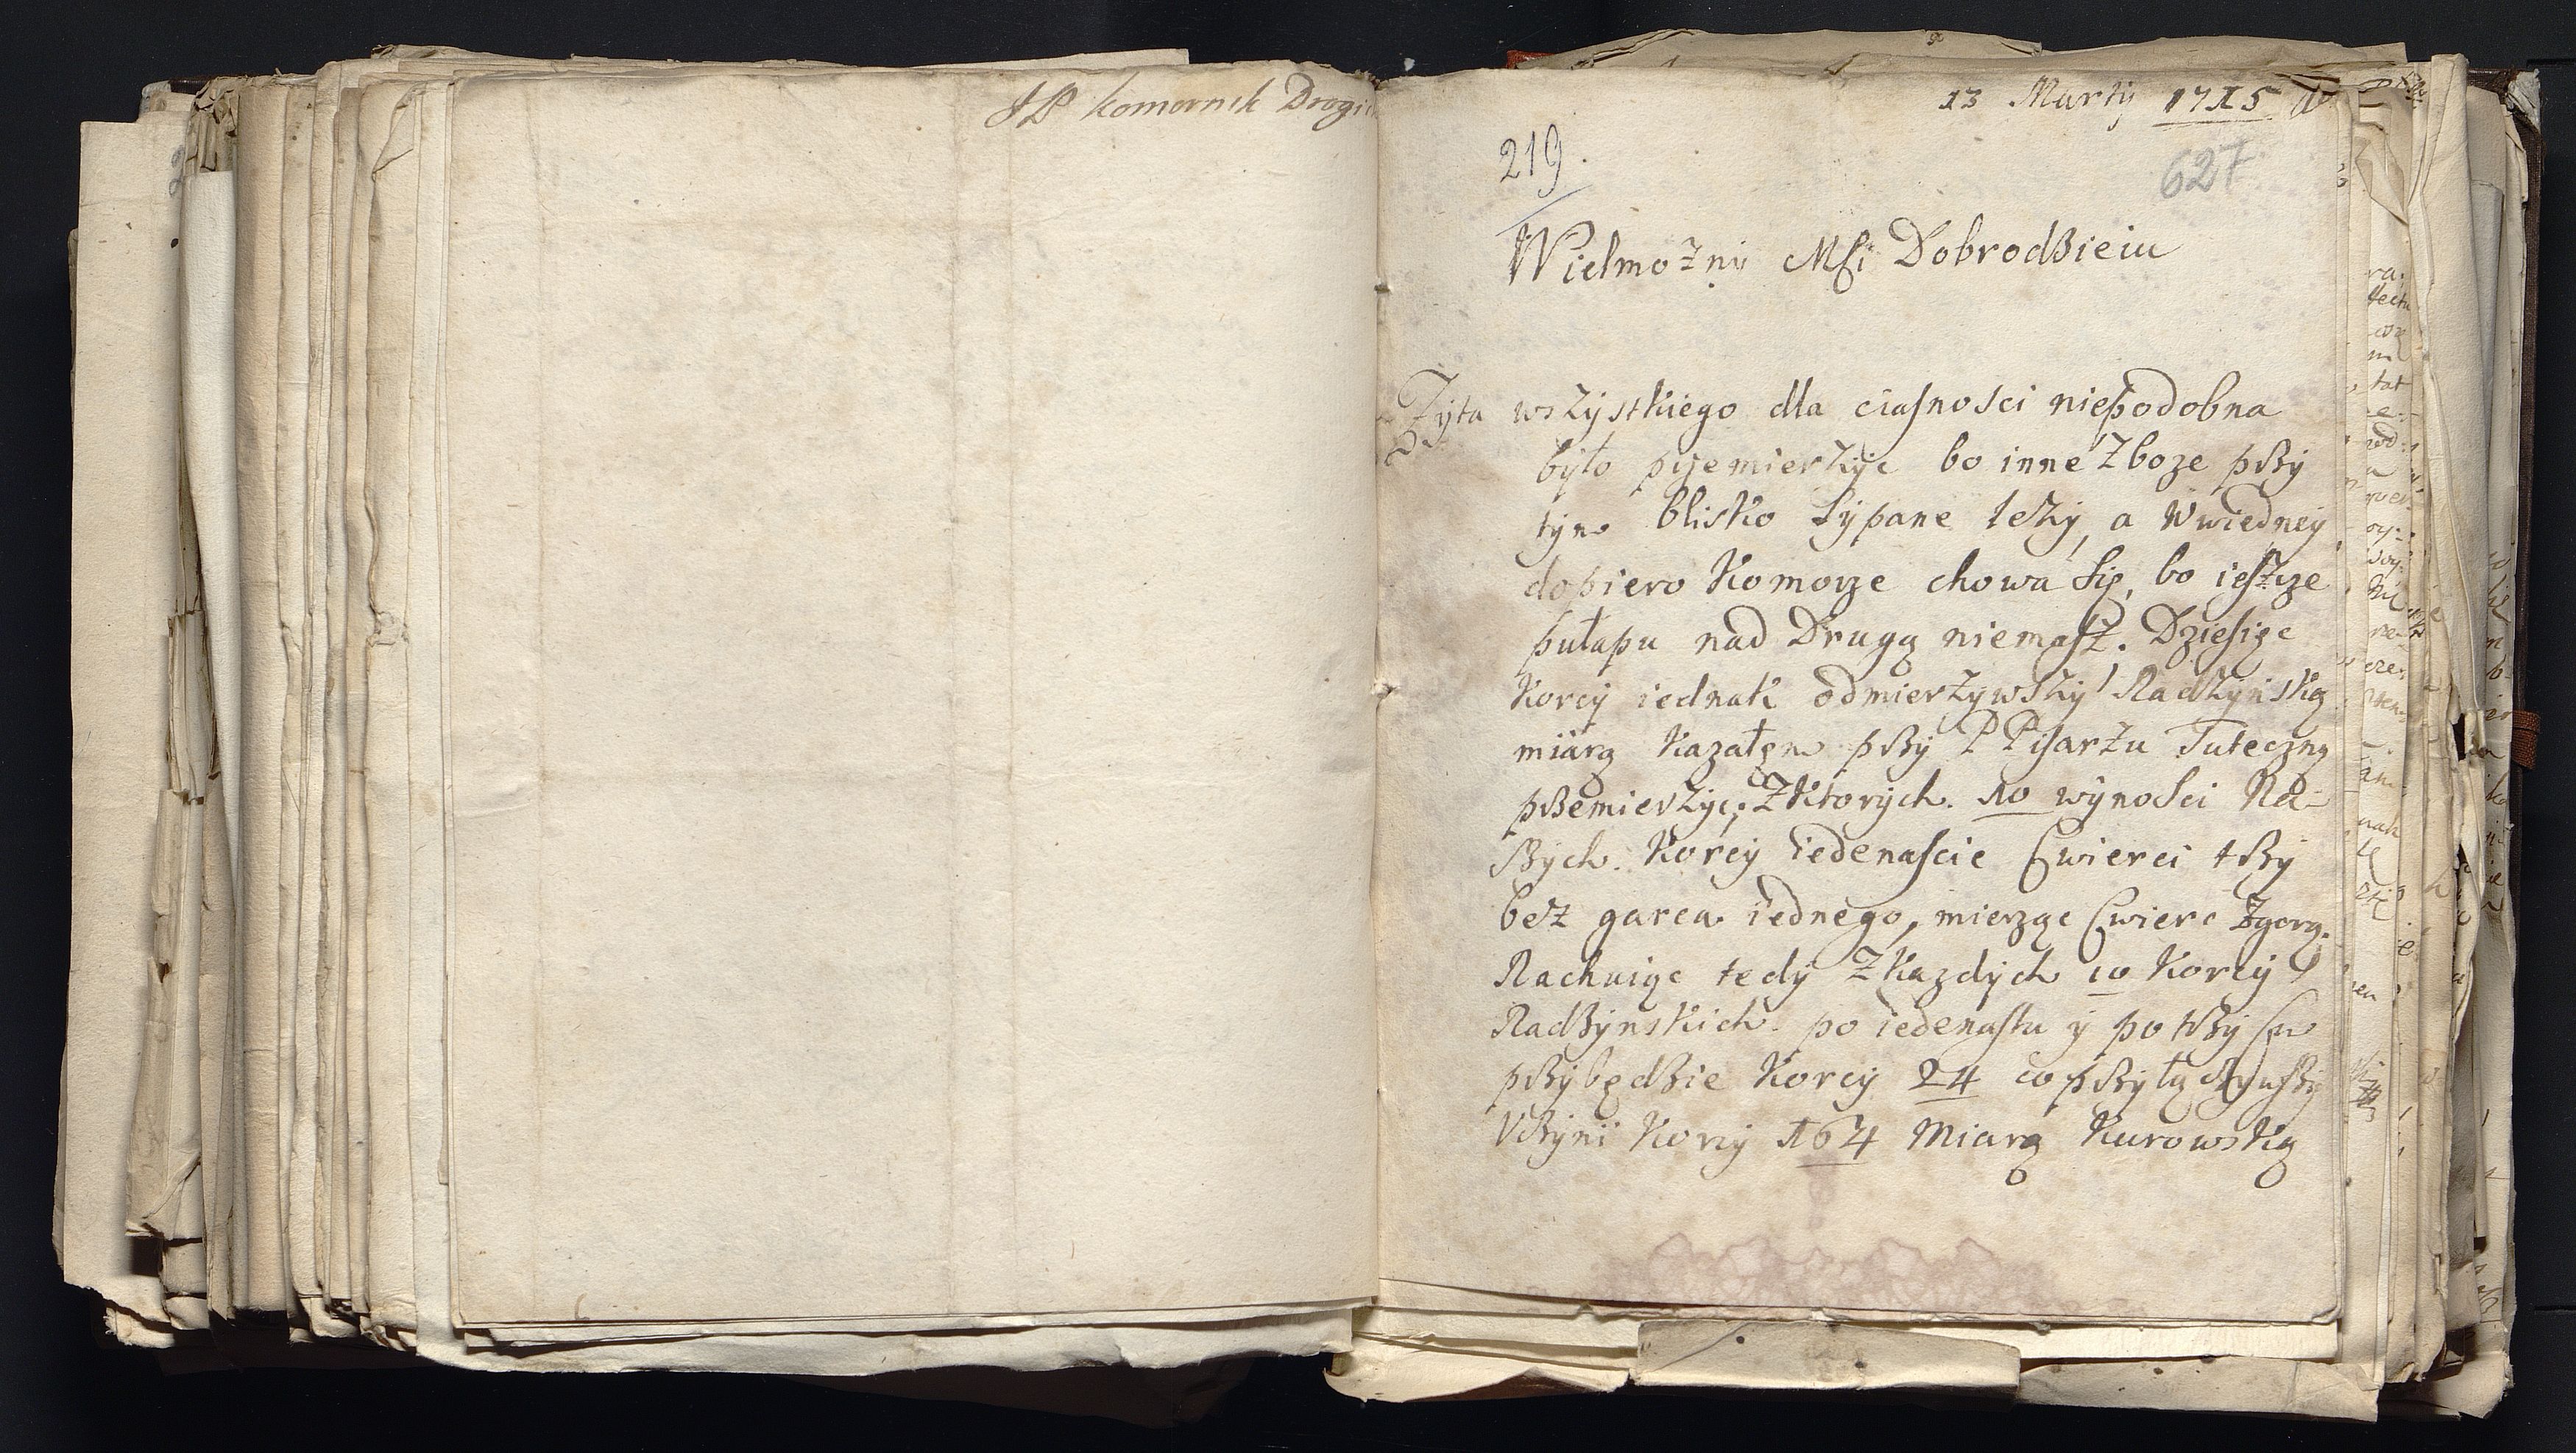 JP komornik Drogic
13 Martÿ 1715
219.
627
Wielmożnÿ MSCi DobrodZieiu
Zÿta wszÿstkiego dla ciasnosci niepodobna
bÿło pżemierzÿc bo inne zboze pRZÿ
tÿm blisko sÿpane leżÿ, a w wiedneÿ
dopiero Komorze chowa się, bo ieszcze
pułapu nad Drugą niemasz. Dziesięc
Korcÿ iednak odmierzÿwszÿ Radzÿnską
miarą kazałem pRZÿ P Pisarzu Tuteczną
pRZemierzÿc; Zktorÿch. 10 wÿnosci Na-
szÿch. Korcÿ iedenascie Cwierci tRZÿ
besz garca iednego, mierząc Cwierc zgorą.
Rachuiąc tedÿ Zkazdÿch 10 Korcÿ
RadZÿnskich po iedenastu ÿ po tRZÿ Cw
pRZÿbędZie Korcÿ 24 co pRZÿłącZÿwsZÿ
VcZÿni Korcÿ 164 Miarą Kurowską